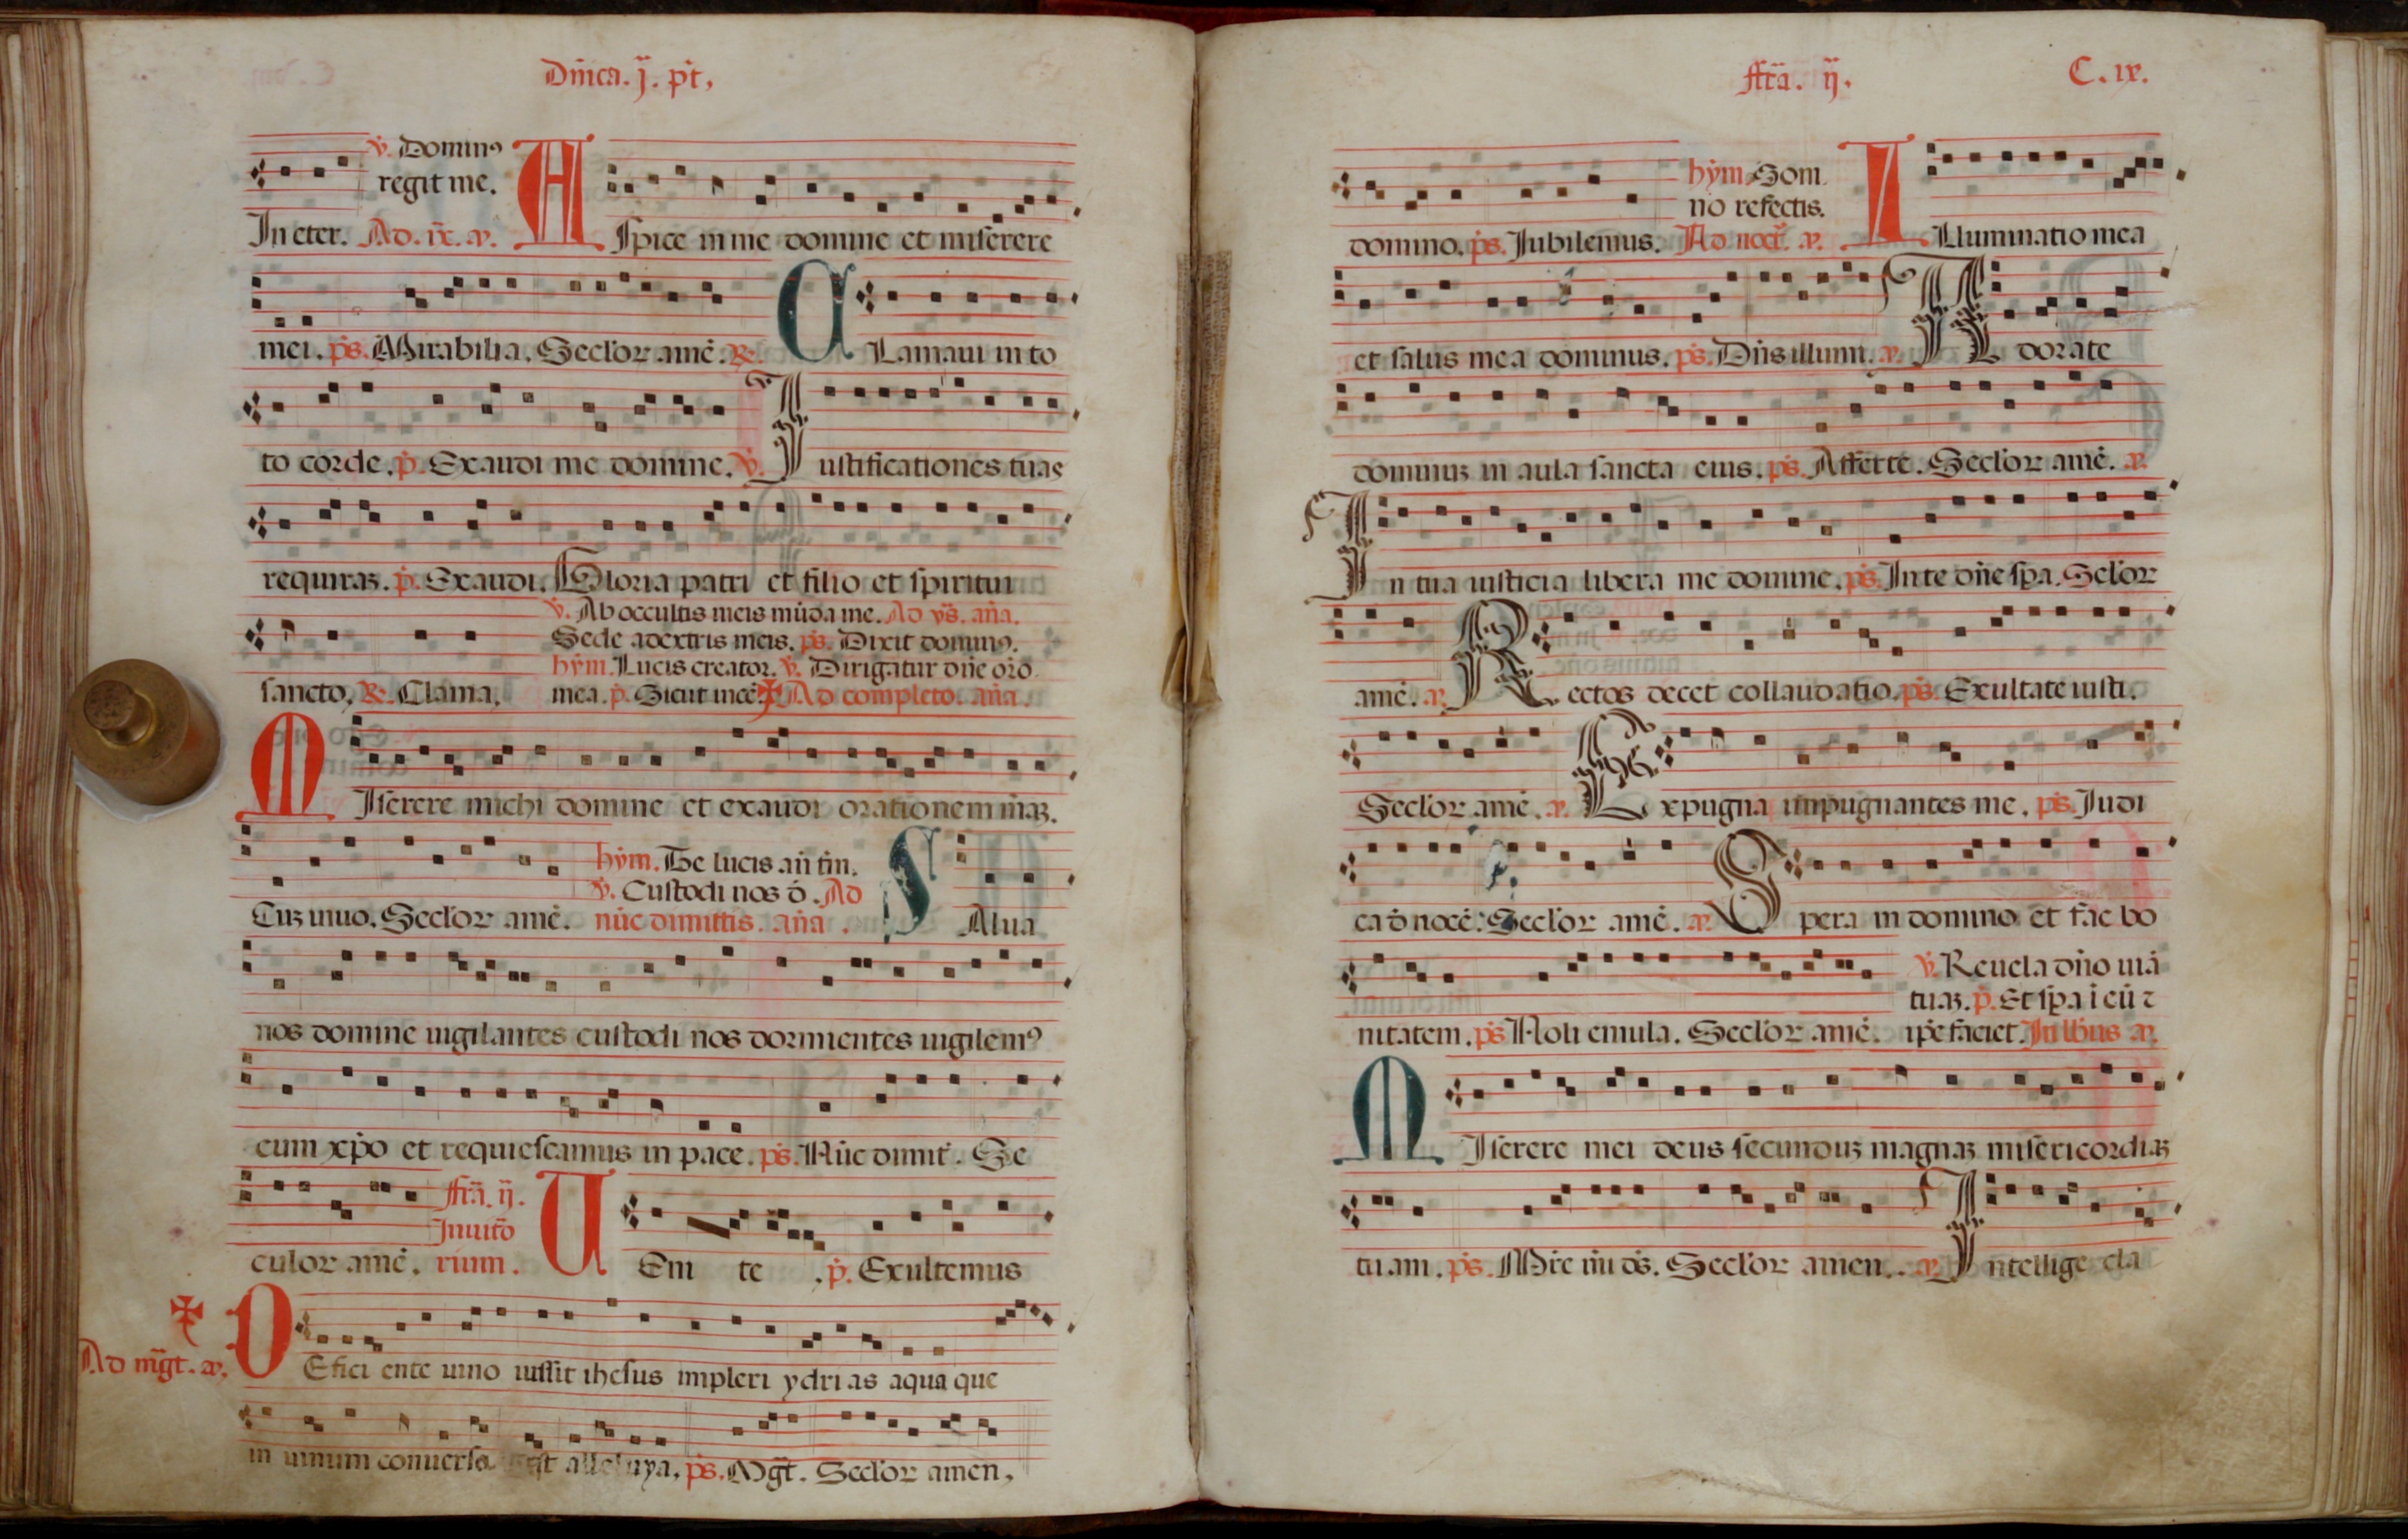 Dn̄ica. j. pt̄,
v̇. Dominꝰ
regit me.
In eter. Ad. ix. a. ASpice in me domine et miserere
mei. ps. Mirabilia. Seclor amē. R. CLamaui in to
to corde. p̄. Exaudi me domine. v̇. Iustificationes tuas
requiraʒ. p̄. Exaudi. Gloria patri et filio et spiritui
v̇. Ab occultis meis mūda me. Ad ys̄. an̄a.
Sede adextris meis. ps. Dixit dominꝰ.
hym. Lucis creator. v̇. Dirigatur dn̄e oro
sancto. R. Clama. mea. p̄. Sicut incē ✠ Ad completo. an̄a.
MIserere michi domine et exaudi orationem meāʒ.
hym. Te lucis an̄ t̄m.
v̇. Custodi nos ō. Ad
Cuʒ inuo. Seclor amē. nūc dimittis. an̄a. SAlua
nos domine uigilantes custodi nos dormientes uigilemꝰ
cum xp̄o et requiescamus in pace. ps. Nūc dimit̄. Se
fr̄a. ij.
Inuitō
culor amē. rium. UEni te. p̄. Exultemus
✠
Ad mḡt. a. DEfici ente uino iussit ihesus impleri ydrias aqua que
in uinum conuersa est alleluya. ps. Mḡt. Seclor amen.
fr̄a. ij. C. ix.
hym. Som
no refectis.
domino. ps. Iubilemus. Ad noct̄. a. ILluminatio mea
et salus mea dominus. ps. Dn̄s illumi. a. Adorate
dominuʒ in aula sancta eius. ps. Afferte. Seclor amē. a.
In tua iusticia libera me domine. ps. In te dn̄e spa. Seclor
amē. a. Rectos decet collaudatio. ps. Exultate iusti.
Seclor amē. a. Expugna inpugnantes me. ps. Iudi
ca d̄ nocē. Seclor amē. a. Spera in domino et fac bo
v̇. Reuela dn̄o uiā
tuaʒ. p̄. Et spa ī eū ⁊
nitatem. ps Noli emula. Seclor amē. ip̄e faciet. In lb̄us a.
MIserere mei deus secunduʒ magnaʒ misericordiaʒ
tuam. ps. Mr̄e mi ds̄. Seclor amen. a. Intellige cla